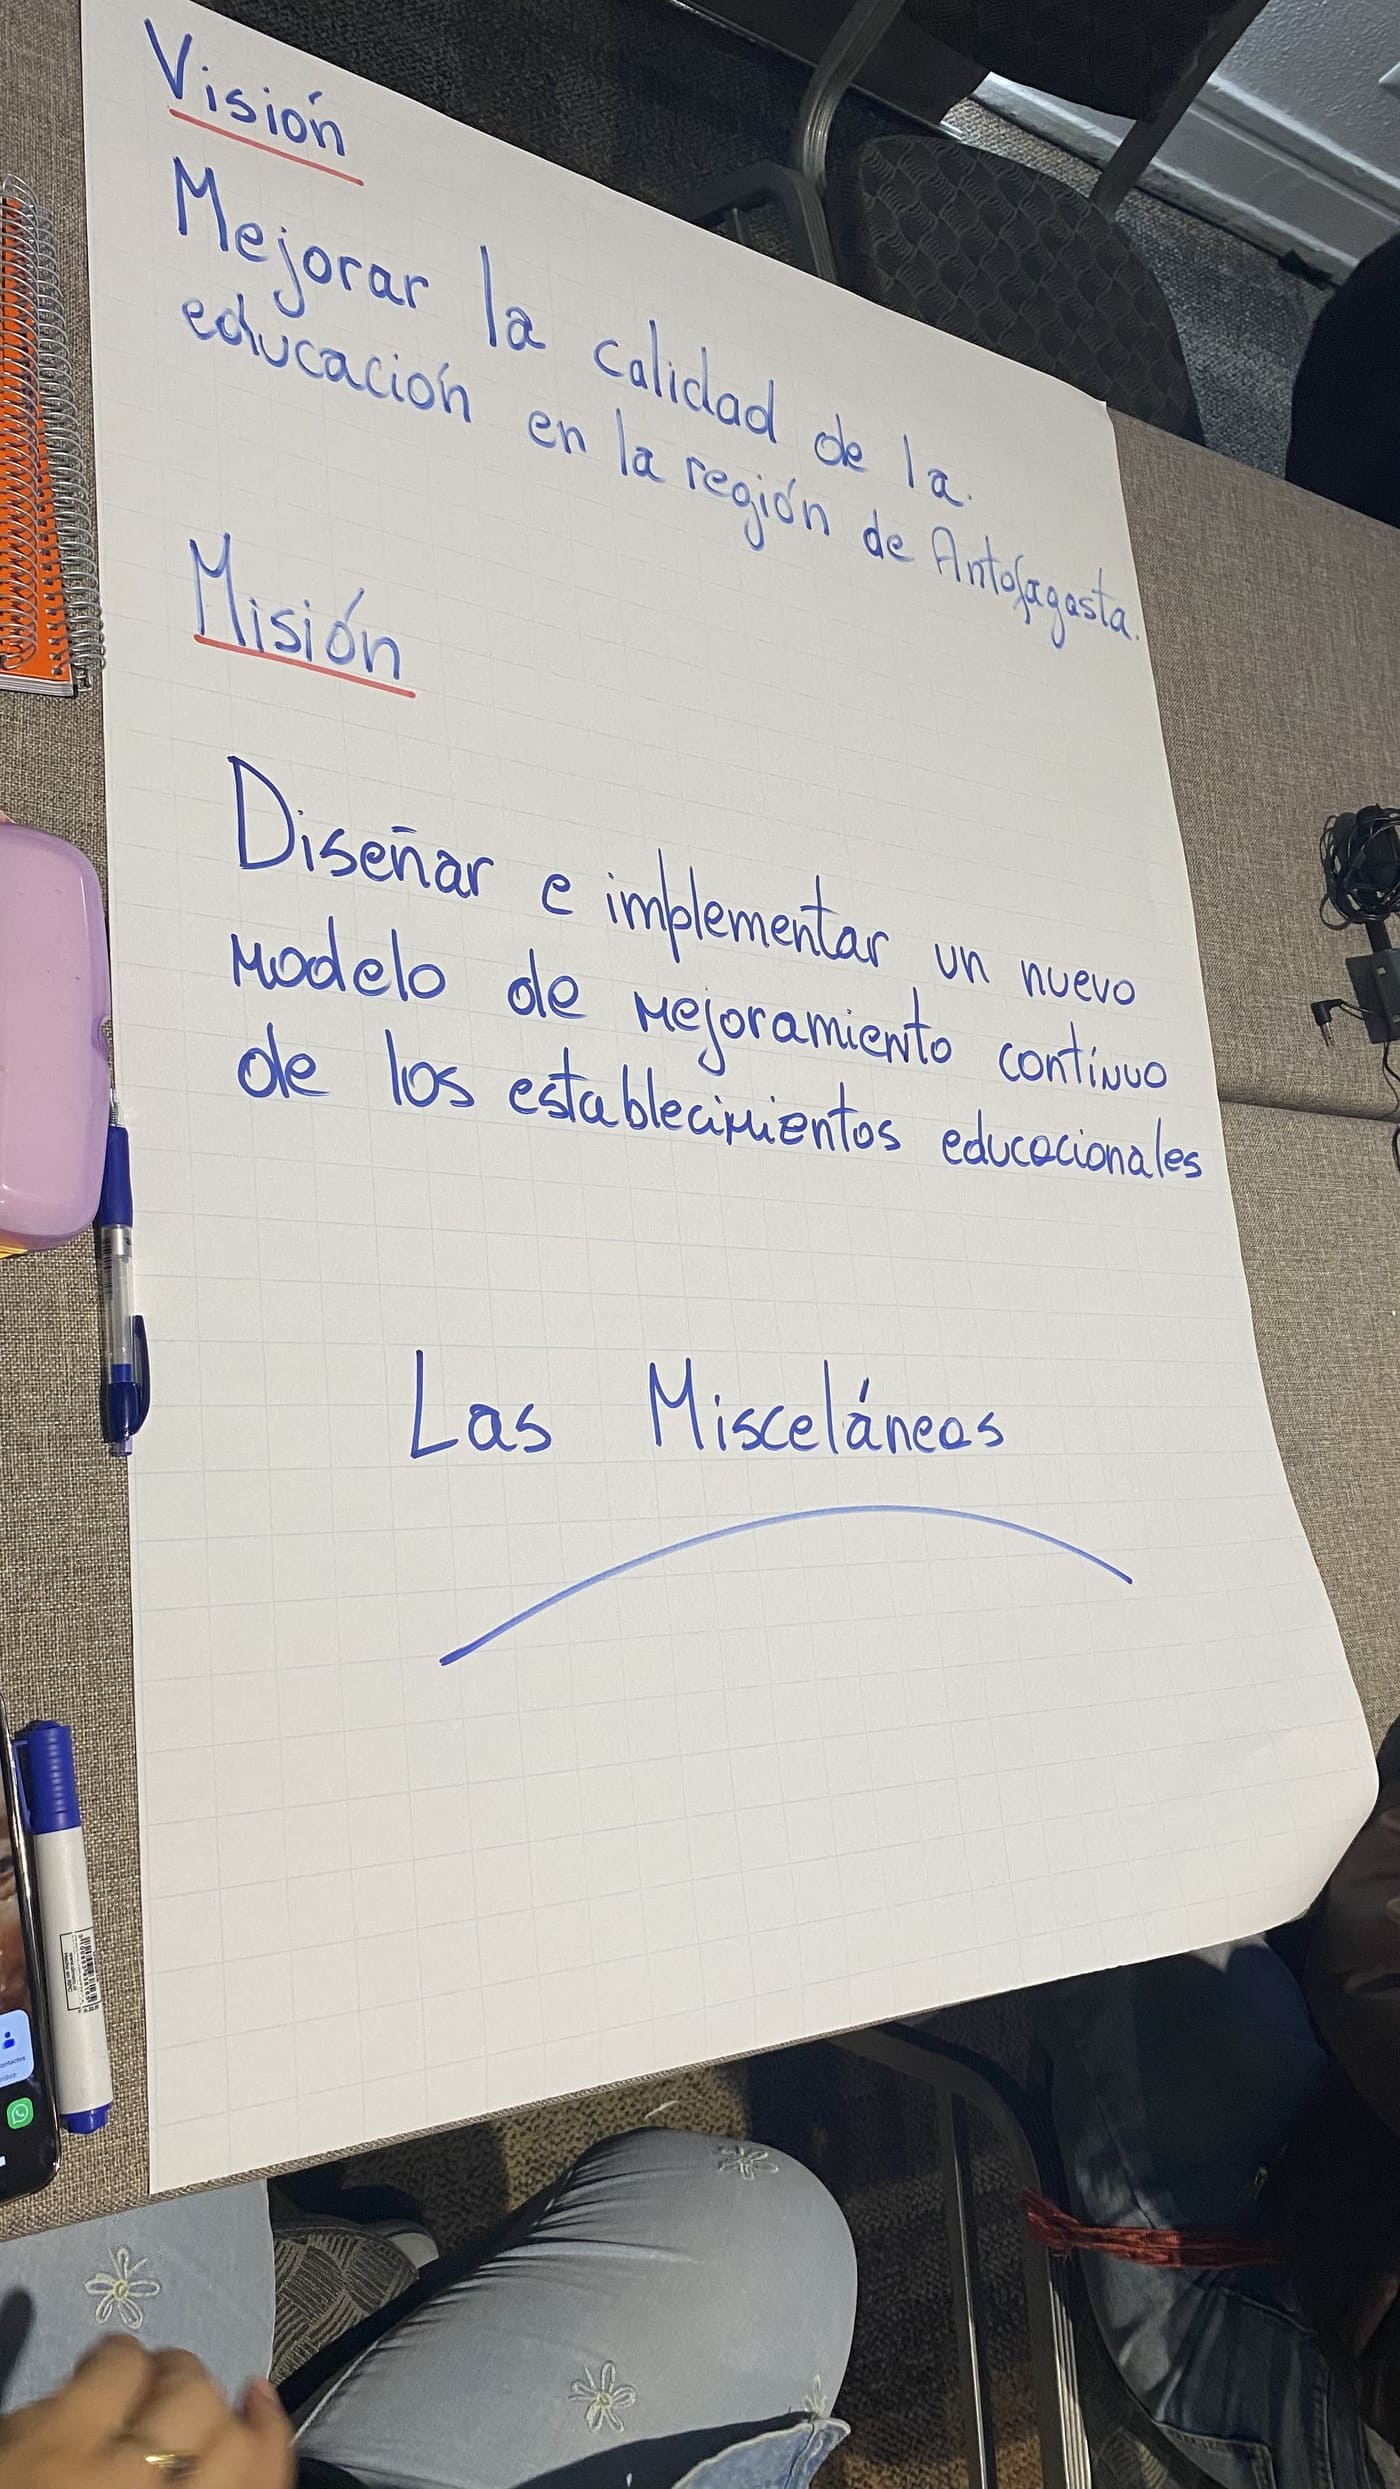 Visión
Mejorar la calidad de la
educación en la región de Antofagasta.
Misión
Diseñar e implementar un nuevo
modelo de mejoramiento continuo
de los establecimientos educacionales
Las Misceláneas